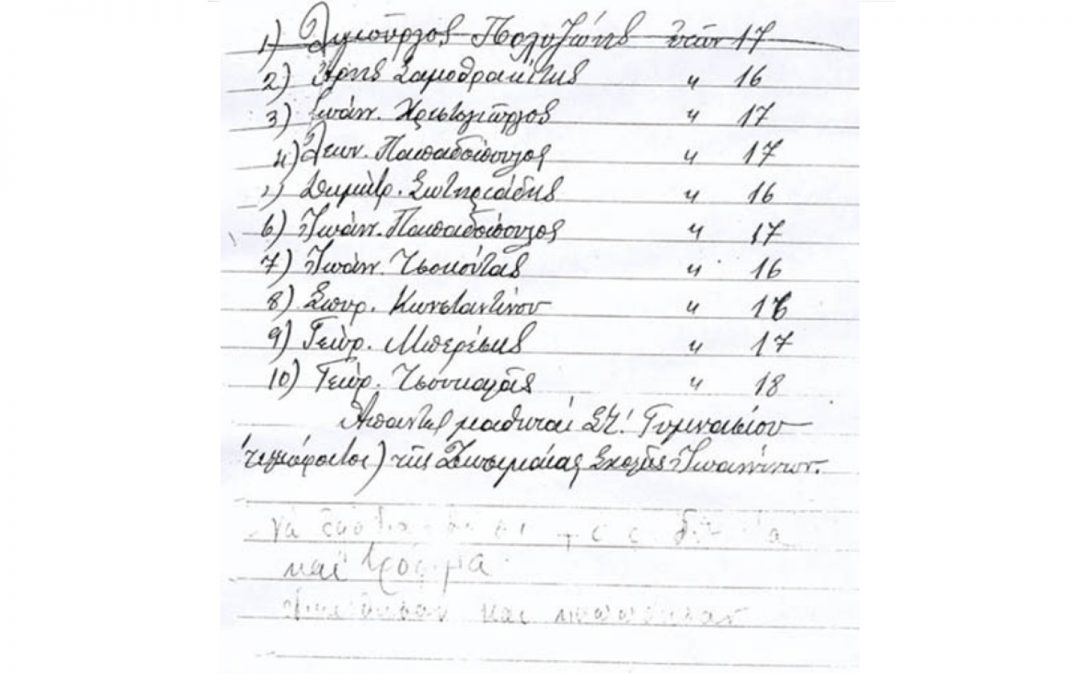 1) Λυκοῦργος Πολυζώης ἐτῶν 17
2) Ἄρης Σαμοθρακίτης " 16
3) Ἰωάν. Χριστογιῶργος " 17
4) Λεων. Παπαδόπουλος " 17
5) Δημήτρ. Σωτηριάδης " 16
6) Ἰωάν. Παπαδόπουλος " 17
7) Ἰωάν. Τσοκούτας " 16
8) Σπυρ. Κωνσταντίνου " 16
9) Γεώρ. Μπερέτης " 17
10) Γεώρ. Τσουκαλᾶς " 18
Ἅπαντες μαθηταί ΣΤ! Γυμνασίου
(τελειόφοιτοι) τῆς Ζωσιμαίας Σχολῆς Ἰωαννίνων.
να
και τρόφιμα
και